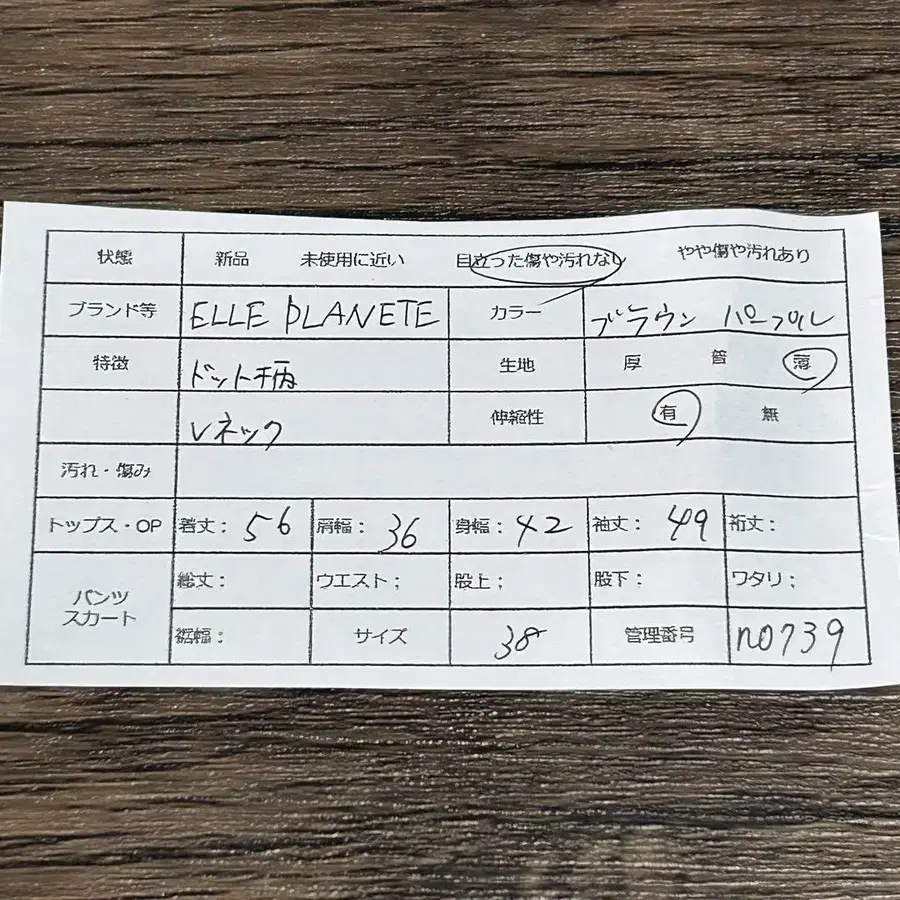 状態 新品 未使用に近い 目立った傷や汚れなし やや傷や汚れあり
ブランド等 ELLE PLANETE カラー ブラウン パープル
特徴 ドット柄 生地 厚 普 薄
Vネック 伸縮性 有 無
汚れ・傷み
トップス・OP 着丈： 56 肩幅： 36 身幅： 42 袖丈： 49 裄丈：
パンツ スカート 総丈： ウエスト； 股上； 股下： ワタリ；
裾幅： サイズ 38 管理番号 no739